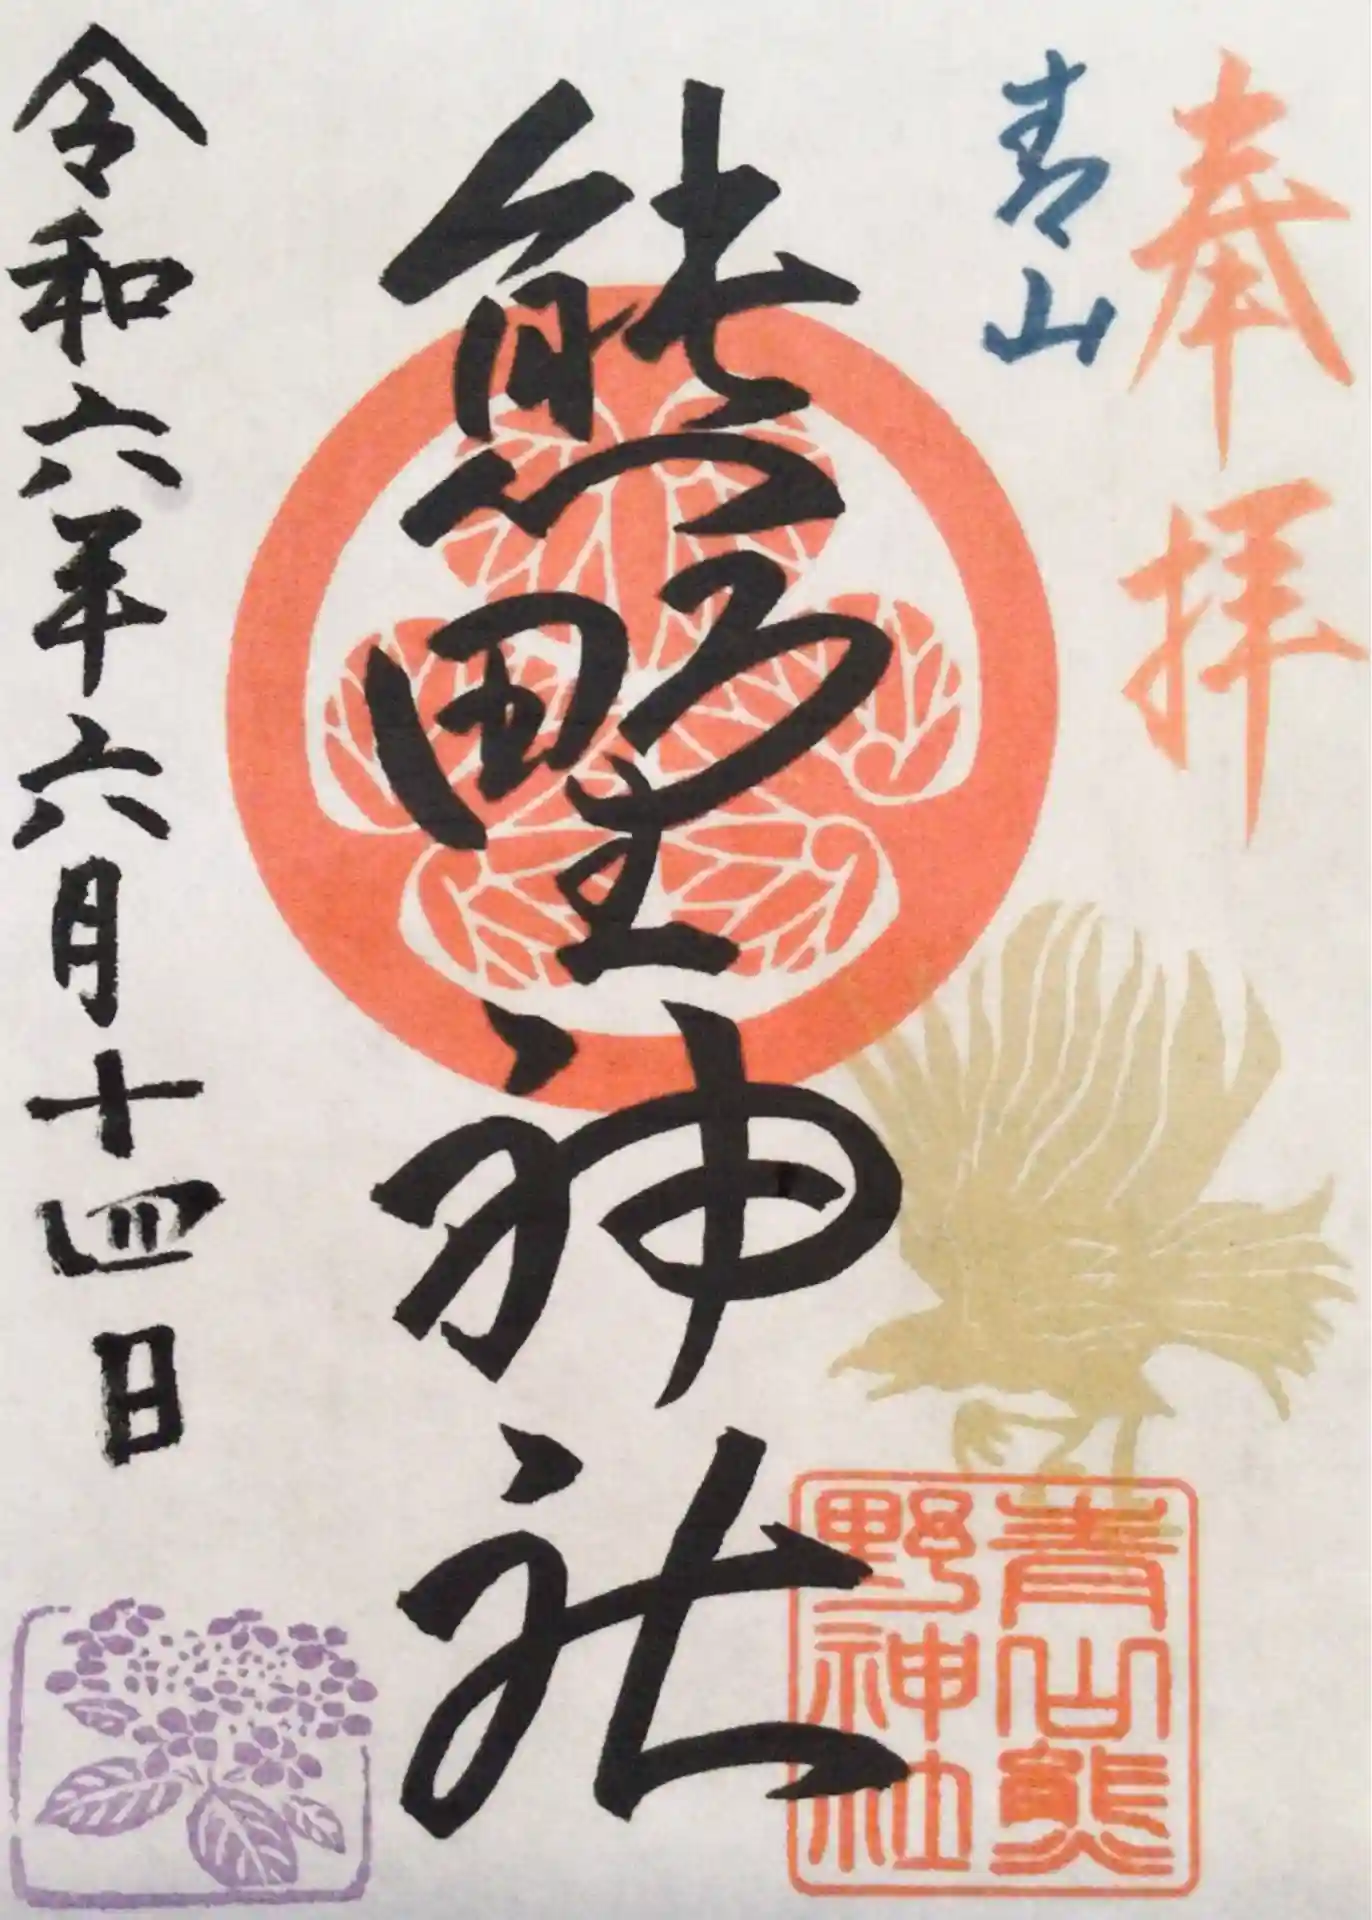 奉拝
青山
熊野神社
青山熊
野神社
令和六年六月十四日